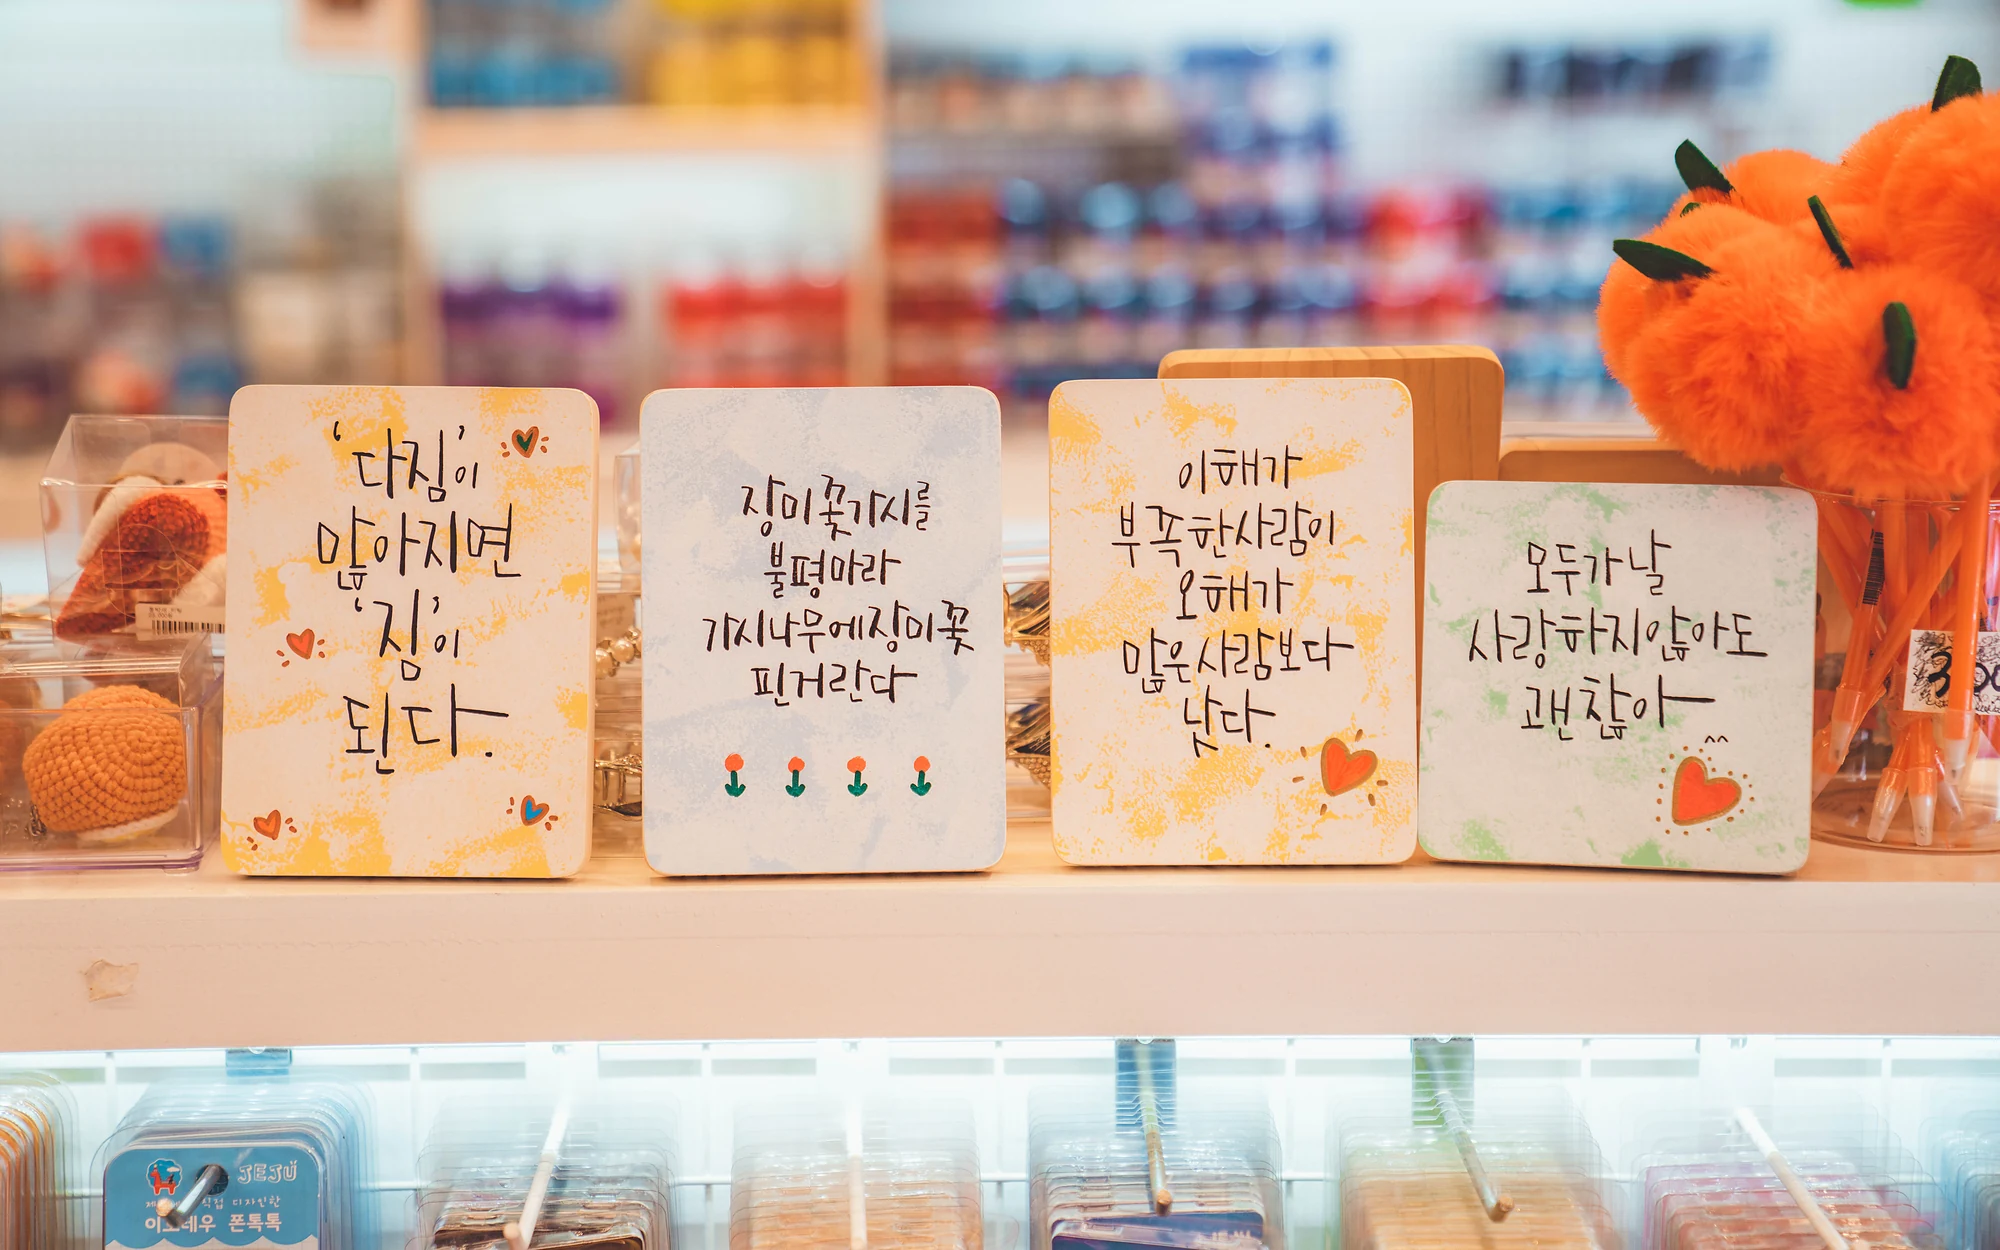 '다짐'이
많아지면
'짐'이
된다.
장미꽃가시를
불평마라
가시나무에장미꽃
핀거란다
이해가
부족한사람이
오해가
많은사람보다
낫다.
모두가날
사랑하지않아도
괜찮아
^^
JEJU
디자인한
폰톡톡